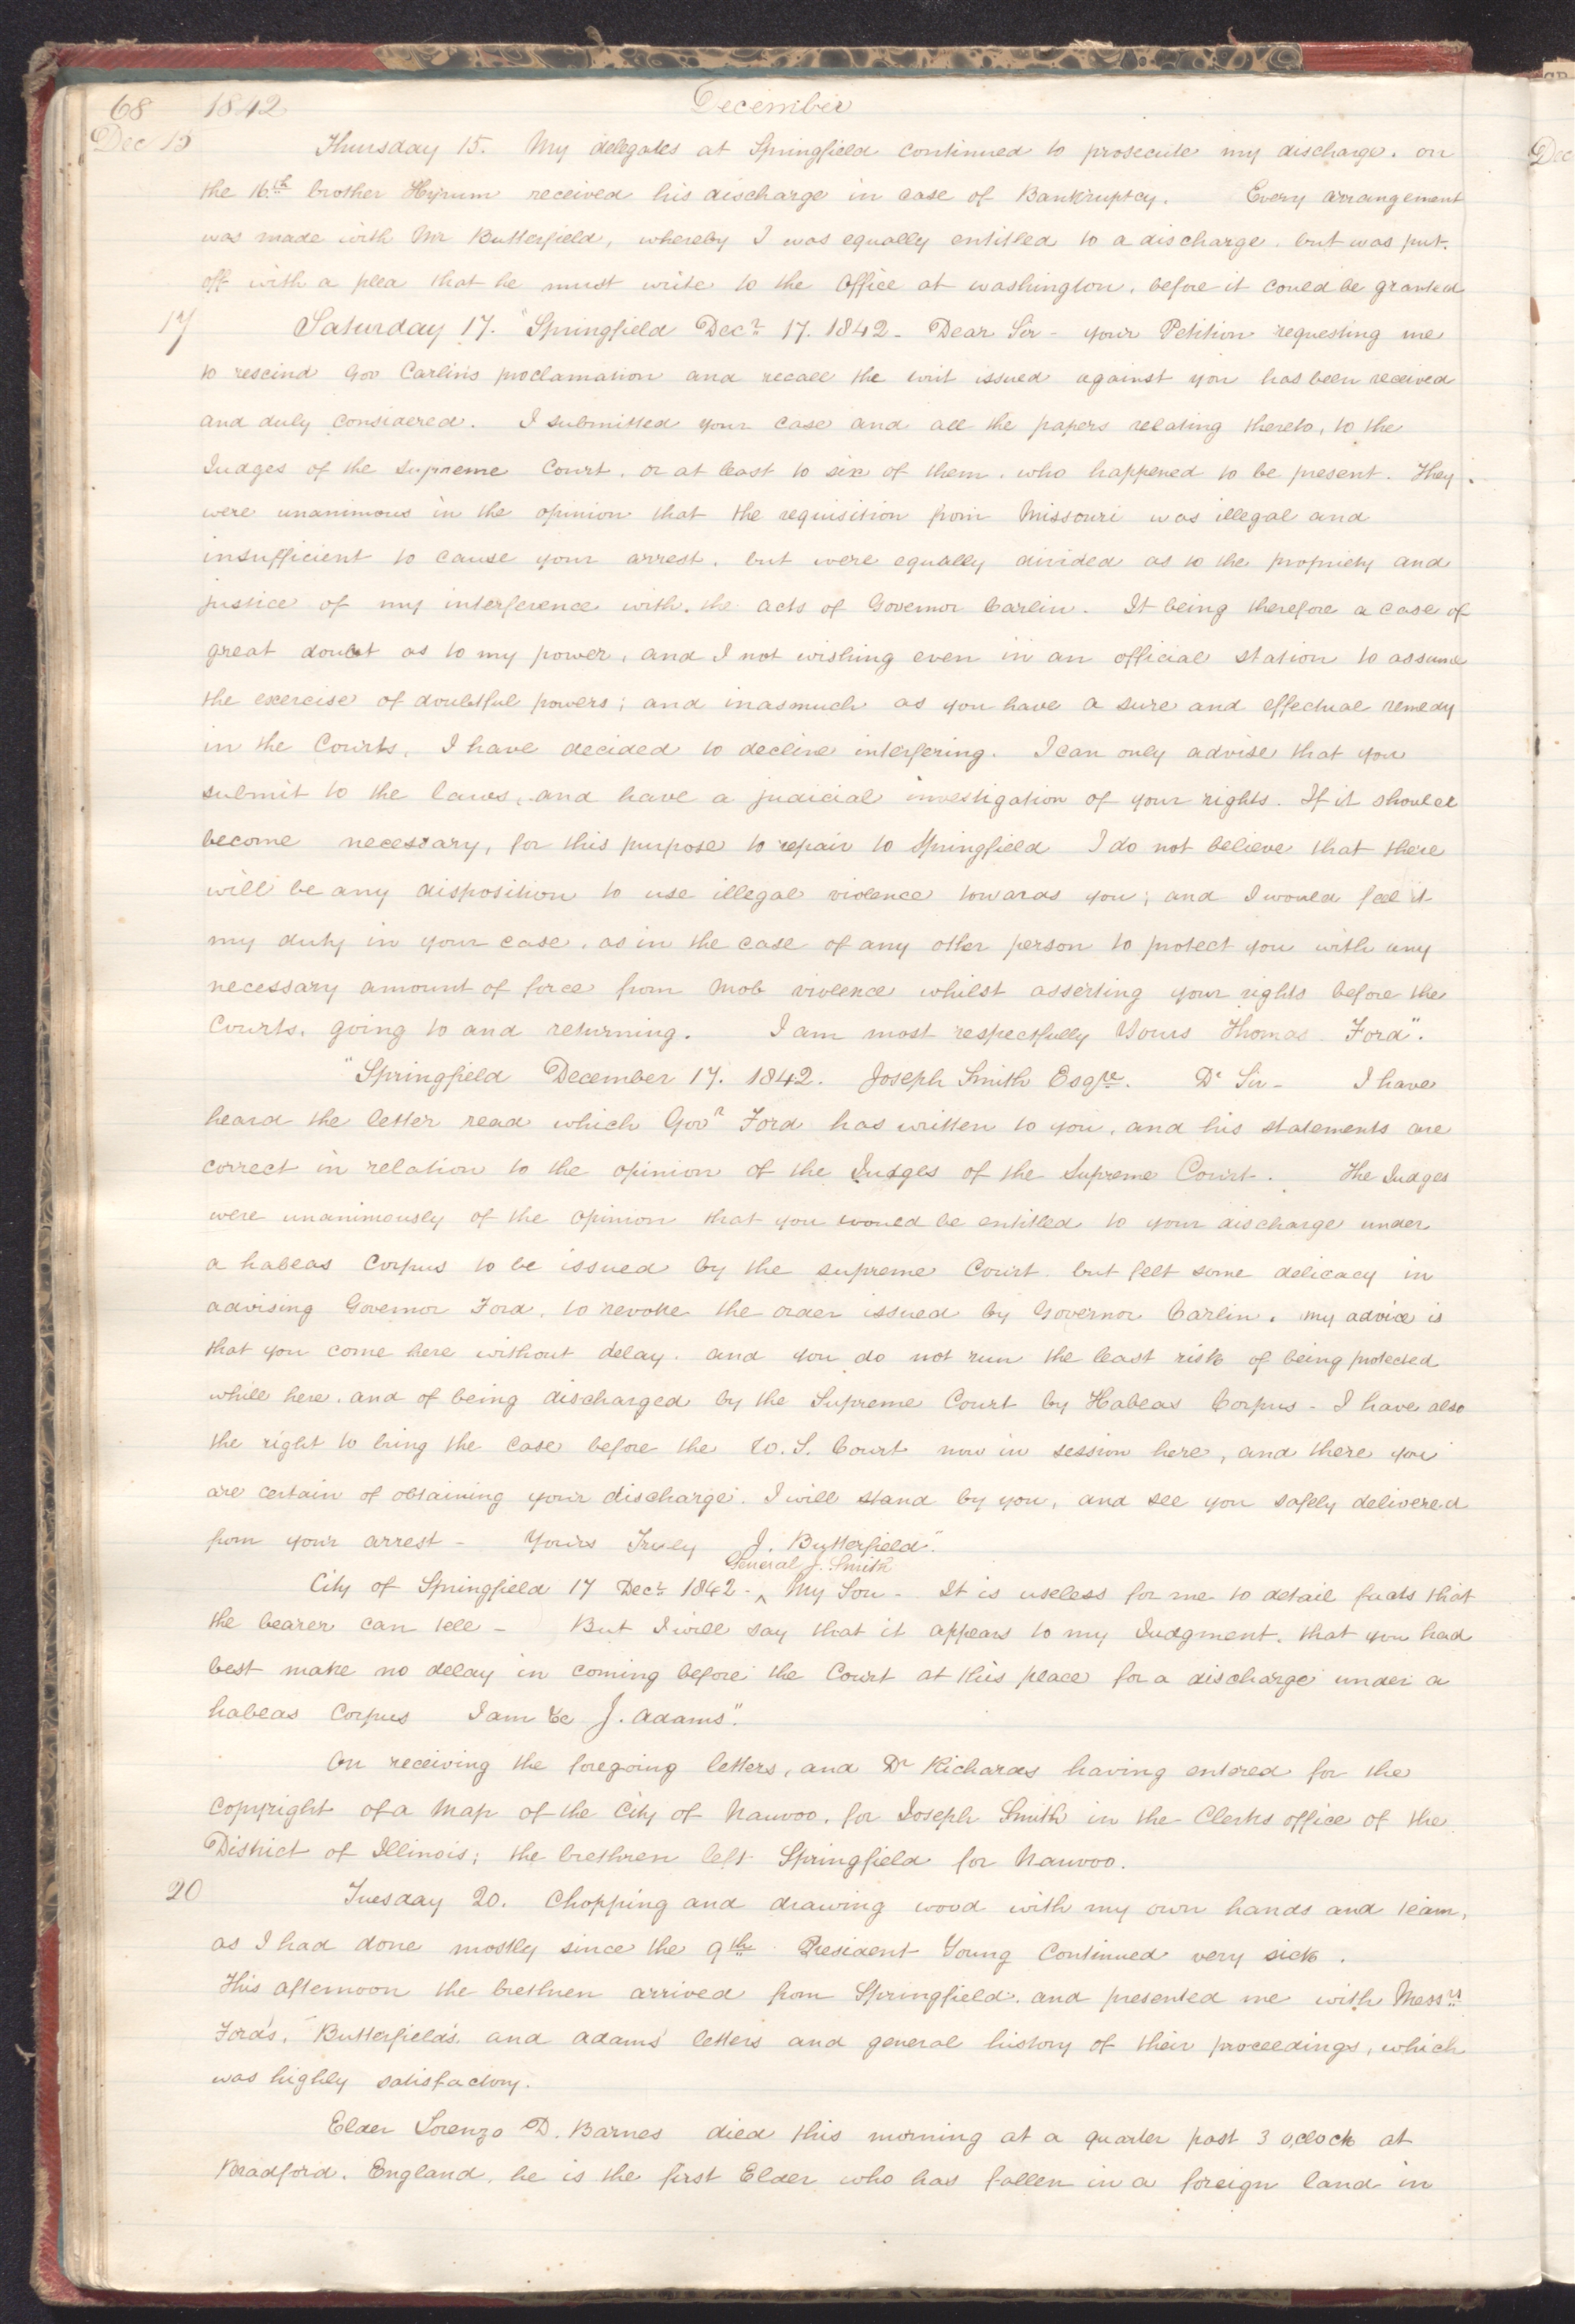 68 1842 December
Dec 15 Thursday 15. My delegates at Springfield continued to prosecute my discharge. on
the 16th brother Hyrum received his discharge in case of Bankruptcy. Every arrangement
was made with Mr Butterfield, whereby I was equally entitled to a discharge. but was put.
off with a plea that he must write to the Office at washington, before it could be granted
17 Saturday 17. "Springfield Decr 17. 1842 - Dear Sir - your Petition requesting me
to rescind Gov Carlin's proclamation and recall the writ issued against you has been received
and duly considered. I submitted your case and all the papers relating thereto, to the
Judges of the Supreme Court, or at least to six of them, who happened to be present. They
were unanimous in the opinion that the requisition from Missouri was illegal and
insufficient to cause your arrest, but were equally divided as to the propriety and
justice of my interference with the acts of Governor Carlin. It being therefore a case of
great doubt as to my power, and I not wishing even in an official station to assume
the exercise of doubtful powers; and inasmuch as you have a sure and effectual remedy
in the Courts, I have decided to decline interfering. I can only advise that you
submit to the laws, and have a judicial investigation of your rights. If it should
become necessary, for this purpose to repair to Springfield I do not believe that there
will be any disposition to use illegal violence towards you; and I would feel it
my duty in your case, as in the case of any other person to protect you with any
necessary amount of force from mob violence whilst asserting your rights before the
Courts, going to and returning. I am most respectfully Yours Thomas Ford".
"Springfield December 17. 1842. Joseph Smith Esqre. Dr Sir - I have
heard the letter read which Govr Ford has written to you, and his statements are
correct in relation to the opinion of the Judges of the Supreme Court. The Judges
were unanimously of the opinion that you would be entitled to your discharge under
a habeas Corpus to be issued by the supreme Court. but felt some delicacy in
advising Governor Ford, to revoke the order issued by Governor Carlin. my advice is
that you come here without delay. and you do not run the least risk of being protected
while here. and of being discharged by the Supreme Court by Habeas Corpus - I have also
the right to bring the case before the U. S. Court now in session here, and there you
are certain of obtaining your discharge. I will stand by you, and see you safely delivered
from your arrest - Yours Truly J. Butterfield."
General J. Smith
City of Springfield 17 Decr 1842 - ^ My Son - It is useless for me to detail facts that
the bearer can tell - But I will say that it appears to my Judgment. that you had
best make no delay in coming before the Court at this place for a discharge under a
habeas Corpus I am &c J. Adams".
On receiving the foregoing letters, and Dr Richards having entered for the
Copyright of a Map of the City of Nauvoo, for Joseph Smith in the Clerks office of the
District of Illinois; the brethren left Springfield for Nauvoo.
20 Tuesday 20. Chopping and drawing wood with my own hands and team,
as I had done mostly since the 9th. President Young Continued very sick.
This afternoon the brethren arrived from Springfield. and presented me with Messrs
Ford's, Butterfield's, and Adams' letters and general history of their proceedings, which
was highly satisfactory.
Elder Lorenzo D. Barnes died this morning at a quarter past 3 o,clock at
Bradford, England, he is the first Elder who has fallen in a foreign land in
Dec